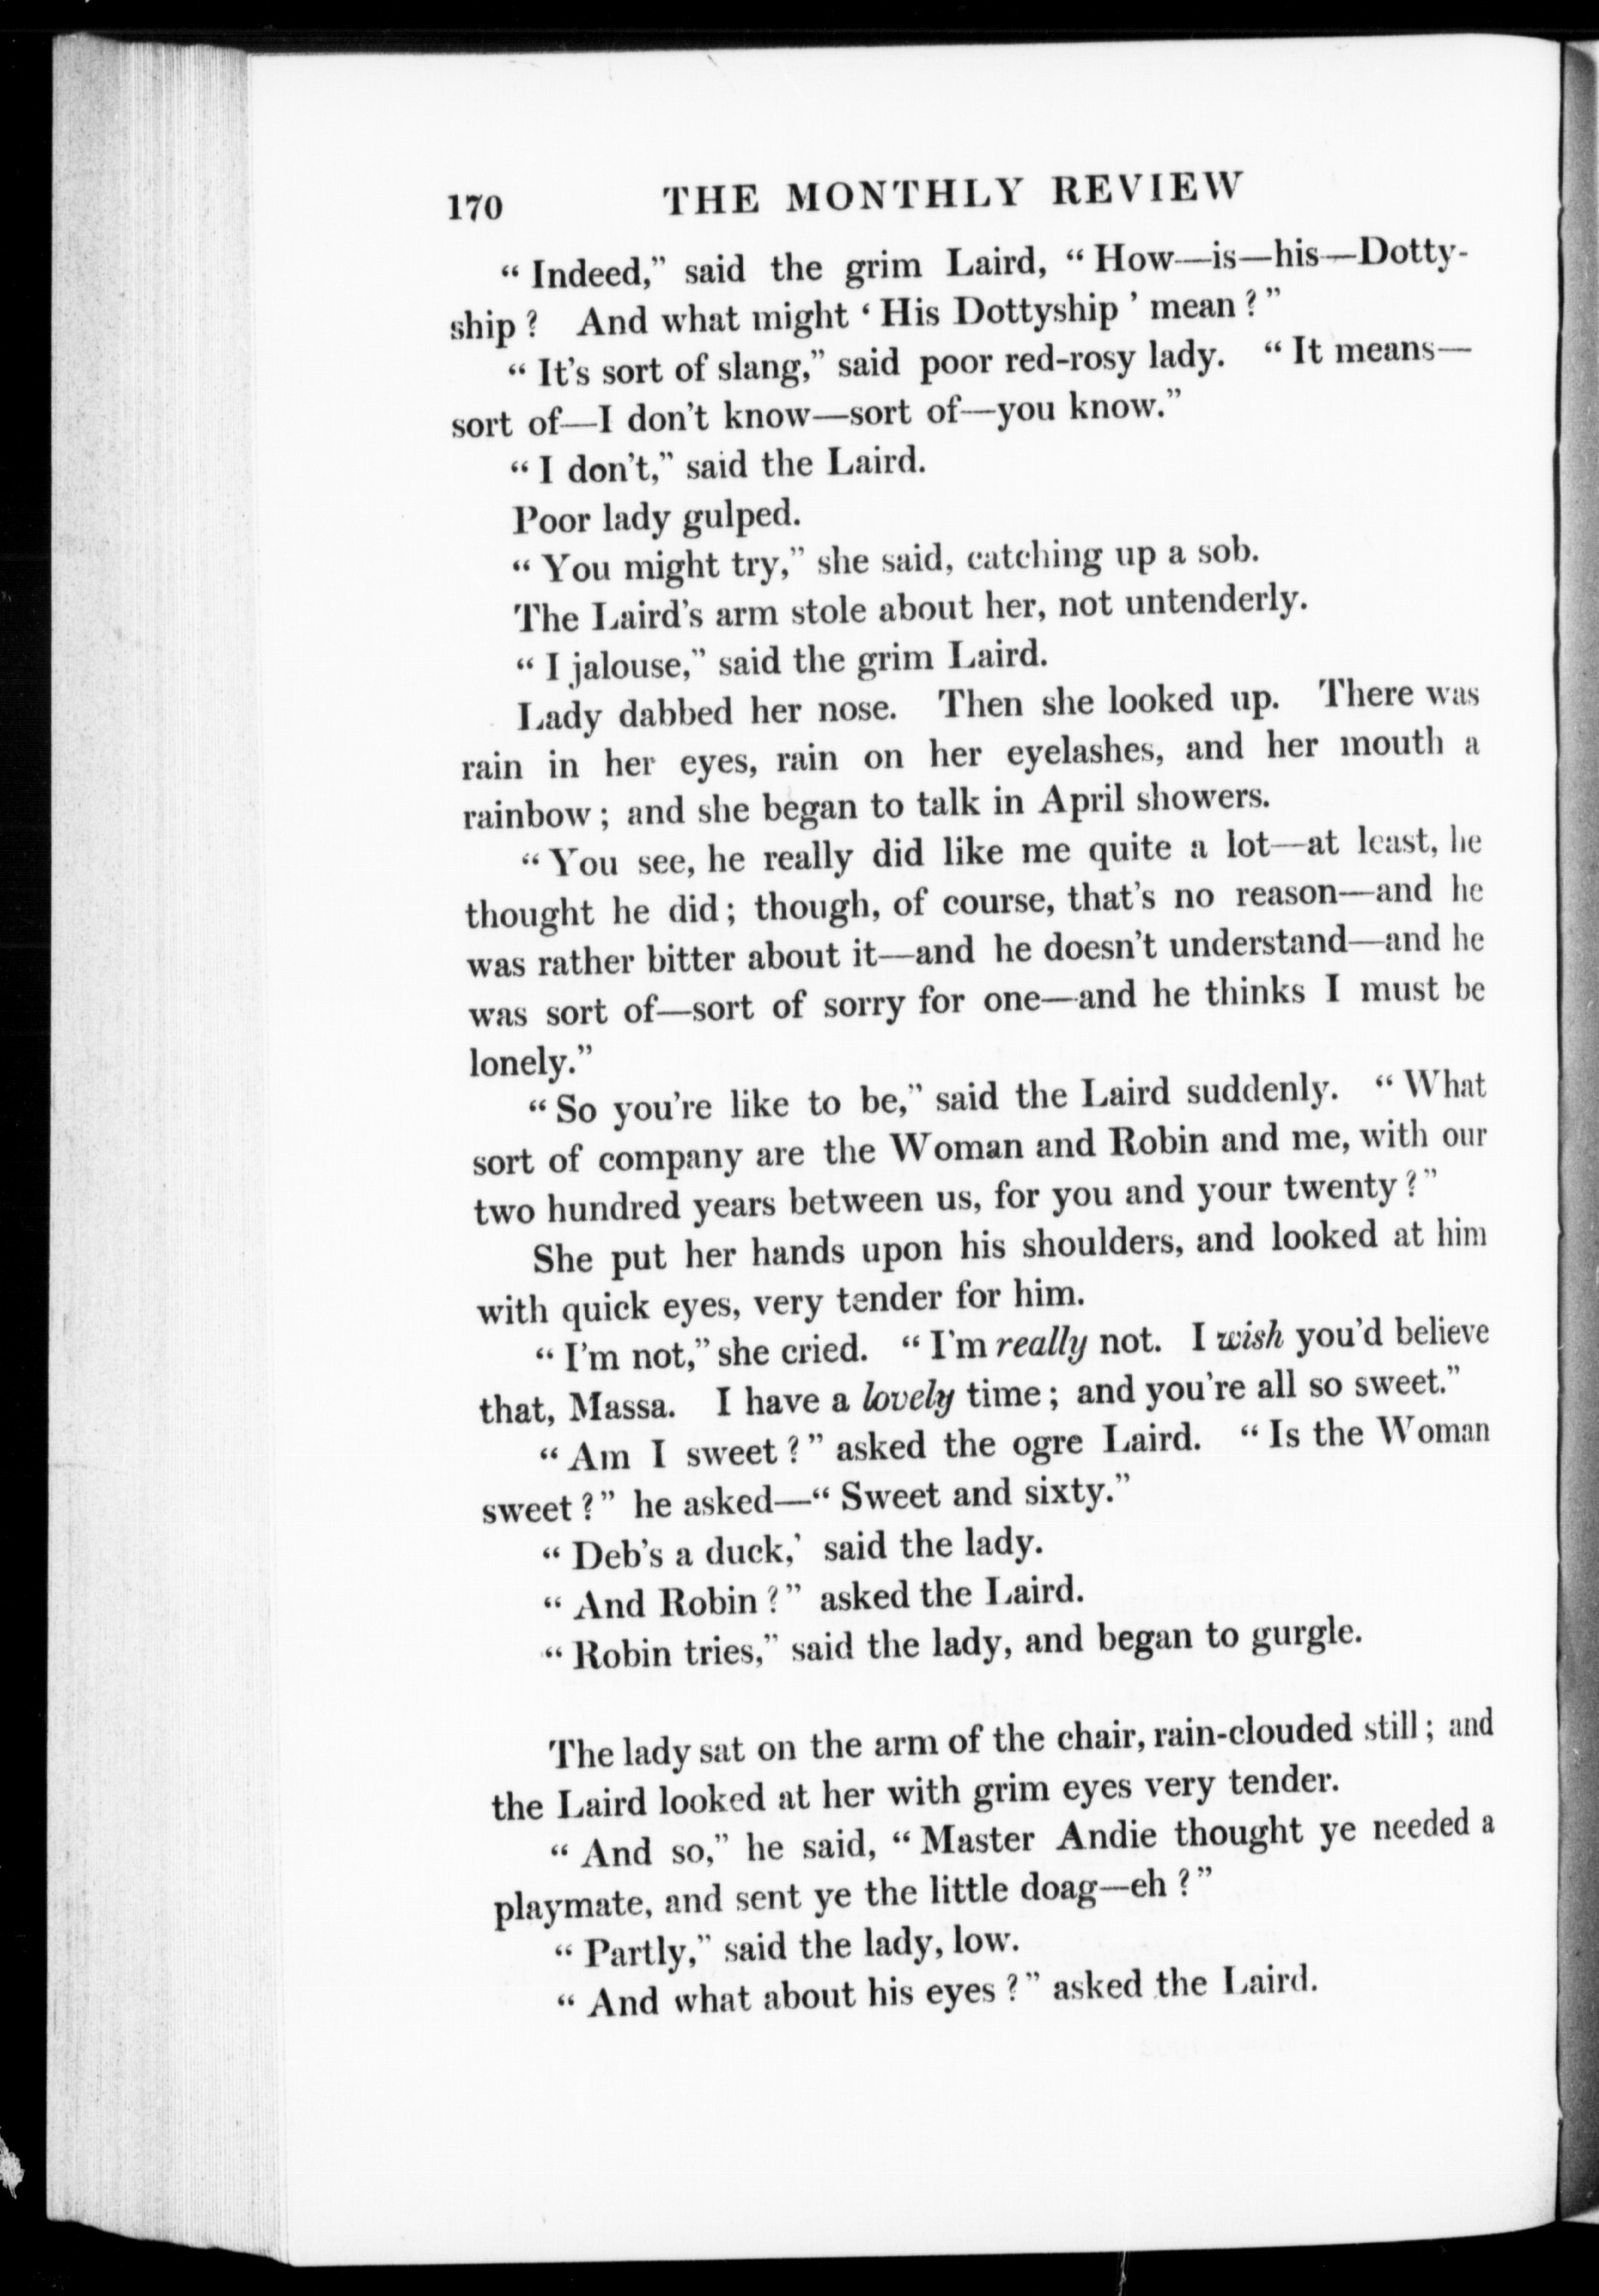 170 THE MONTHLY REVIEW
“ Indeed,” said the grim Laird, “ How—is—his—Dotty-
ship ? And what might ‘ His Dottyship ’ mean ? ”
“ It's sort of slang,” said poor red-rosy lady. “ It means—
sort of—I don't know—sort of—you know.”
“ I don't,” said the Laird.
Poor lady gulped.
“ You might try,” she said, catching up a sob.
The Laird's arm stole about her, not untenderly.
“ I jalouse,” said the grim Laird.
Lady dabbed her nose. Then she looked up. There was
rain in her eyes, rain on her eyelashes, and her mouth a
rainbow ; and she began to talk in April showers.
“ You see, he really did like me quite a lot—at least, he
thought he did ; though, of course, that's no reason—and he
was rather bitter about it—and he doesn't understand—and he
was sort of—sort of sorry for one—and he thinks I must be
lonely.”
“ So you're like to be,” said the Laird suddenly. “ What
sort of company are the Woman and Robin and me, with our
two hundred years between us, for you and your twenty ? ”
She put her hands upon his shoulders, and looked at him
with quick eyes, very tender for him.
“ I'm not,” she cried. “ I'm really not. I wish you'd believe
that, Massa. I have a lovely time ; and you're all so sweet.”
“ Am I sweet ? ” asked the ogre Laird. “ Is the Woman
sweet ? ” he asked—“ Sweet and sixty.”
“ Deb's a duck,’ said the lady.
“ And Robin ? ” asked the Laird.
“ Robin tries,” said the lady, and began to gurgle.
The lady sat on the arm of the chair, rain-clouded still ; and
the Laird looked at her with grim eyes very tender.
“ And so,” he said, “ Master Andie thought ye needed a
playmate, and sent ye the little doag—eh ? ”
“ Partly,” said the lady, low.
“ And what about his eyes ? ” asked the Laird.